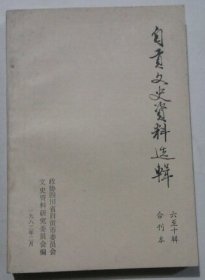 自贡文史资料选辑
六至十辑
合刊本
政协四川省自贡市委员会
文史资料研究委员会编
一九八二年二月